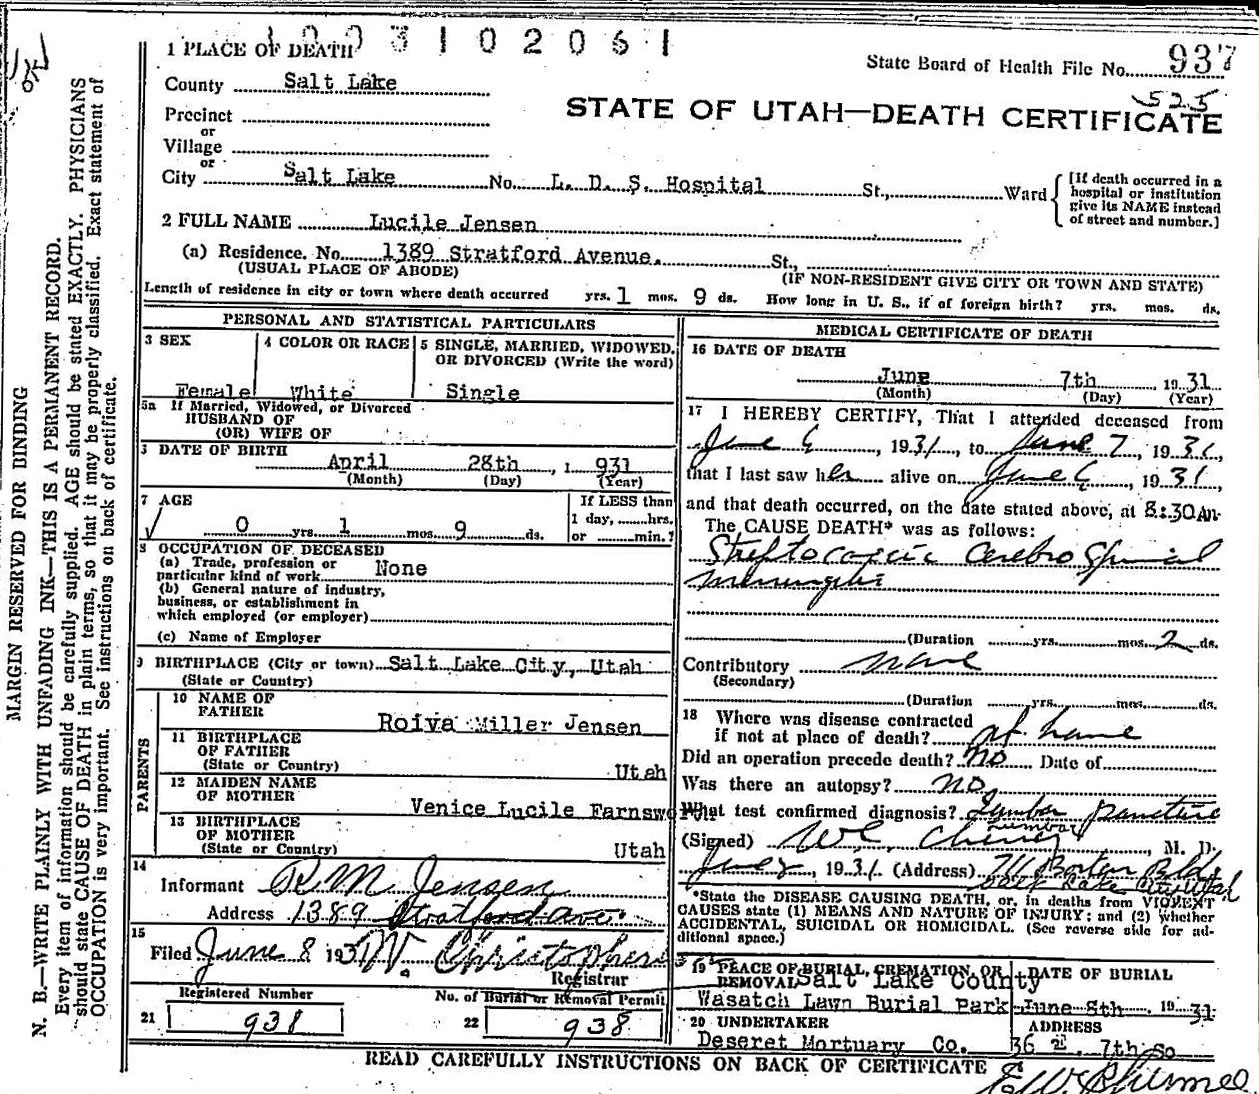 1003102061
1 PLACE OF DEATH
State Board of Health File No. 937
525
County Salt Lake
STATE OF UTAH—DEATH CERTIFICATE
Precinct
or
Village
or
City Salt Lake No. L. D. S. Hospital St., Ward
[If death occurred in a
hospital or institution
give its NAME instead
of street and number.]
2 FULL NAME Lucile Jensen
(a) Residence. No. 1389 Stratford Avenue. St.,
(USUAL PLACE OF ABODE) (IF NON-RESIDENT GIVE CITY OR TOWN AND STATE)
Length of residence in city or town where death occurred yrs. 1 mos. 9 ds. How long in U. S., if of foreign birth? yrs. mos. ds.
MARGIN RESERVED FOR BINDING
N. B.—WRITE PLAINLY WITH UNFADING INK—THIS IS A PERMANENT RECORD.
Every item of information should be carefully supplied. AGE should be stated EXACTLY. PHYSICIANS
should state CAUSE OF DEATH in plain terms, so that it may be properly classified. Exact statement of
OCCUPATION is very important. See instructions on back of certificate.
PERSONAL AND STATISTICAL PARTICULARS
3 SEX
Female
4 COLOR OR RACE
White
5 SINGLE, MARRIED, WIDOWED,
OR DIVORCED (Write the word)
Single
5a If Married, Widowed, or Divorced
HUSBAND OF
(OR) WIFE OF
DATE OF BIRTH
April 28th, 1931
(Month) (Day) (Year)
7 AGE
0 yrs. 1 mos. 9 ds.
If LESS than
1 day, hrs.
or min.?
8 OCCUPATION OF DECEASED
(a) Trade, profession or
particular kind of work None
(b) General nature of industry,
business, or establishment in
which employed (or employer)
(c) Name of Employer
9 BIRTHPLACE (City or town) Salt Lake City, Utah
(State or Country)
PARENTS
10 NAME OF
FATHER
Roiva Miller Jensen
11 BIRTHPLACE
OF FATHER
(State or Country)
Utah
12 MAIDEN NAME
OF MOTHER
Venice Lucile Farnsworth
13 BIRTHPLACE
OF MOTHER
(State or Country)
Utah
14
Informant R M Jensen
Address 1389 Stratford ave.
15
Filed June 8 193
Registrar
Registered Number
21 938
No. of Burial or Removal Permit
22 938
MEDICAL CERTIFICATE OF DEATH
16 DATE OF DEATH
June 7th, 1931
(Month) (Day) (Year)
17 I HEREBY CERTIFY, That I attended deceased from
June 6, 1931, to June 7, 1931,
that I last saw her alive on June 6, 1931,
and that death occurred, on the date stated above, at 8:30 AM
The CAUSE DEATH* was as follows:
Streptococcic Cerebro Spinal
Meningitis
(Duration yrs. mos. 2 ds.
Contributory none
(Secondary)
(Duration yrs. mos. ds.
18 Where was disease contracted
if not at place of death? at home
Did an operation precede death? no Date of
Was there an autopsy? no
What test confirmed diagnosis? Lumbar puncture
lumbar
(Signed) , M. D.
, 1931. (Address) 711 Boston Bldg
Salt Lake City Utah
*State the DISEASE CAUSING DEATH, or, in deaths from VIOLENT
CAUSES state (1) MEANS AND NATURE OF INJURY: and (2) whether
ACCIDENTAL, SUICIDAL OR HOMICIDAL. (See reverse side for ad-
ditional space.)
19 PLACE OF BURIAL, CREMATION, OR
REMOVAL Salt Lake County
Wasatch Lawn Burial Park
DATE OF BURIAL
June 8th 1931
20 UNDERTAKER
Deseret Mortuary Co.
ADDRESS
36 E. 7th So
READ CAREFULLY INSTRUCTIONS ON BACK OF CERTIFICATE